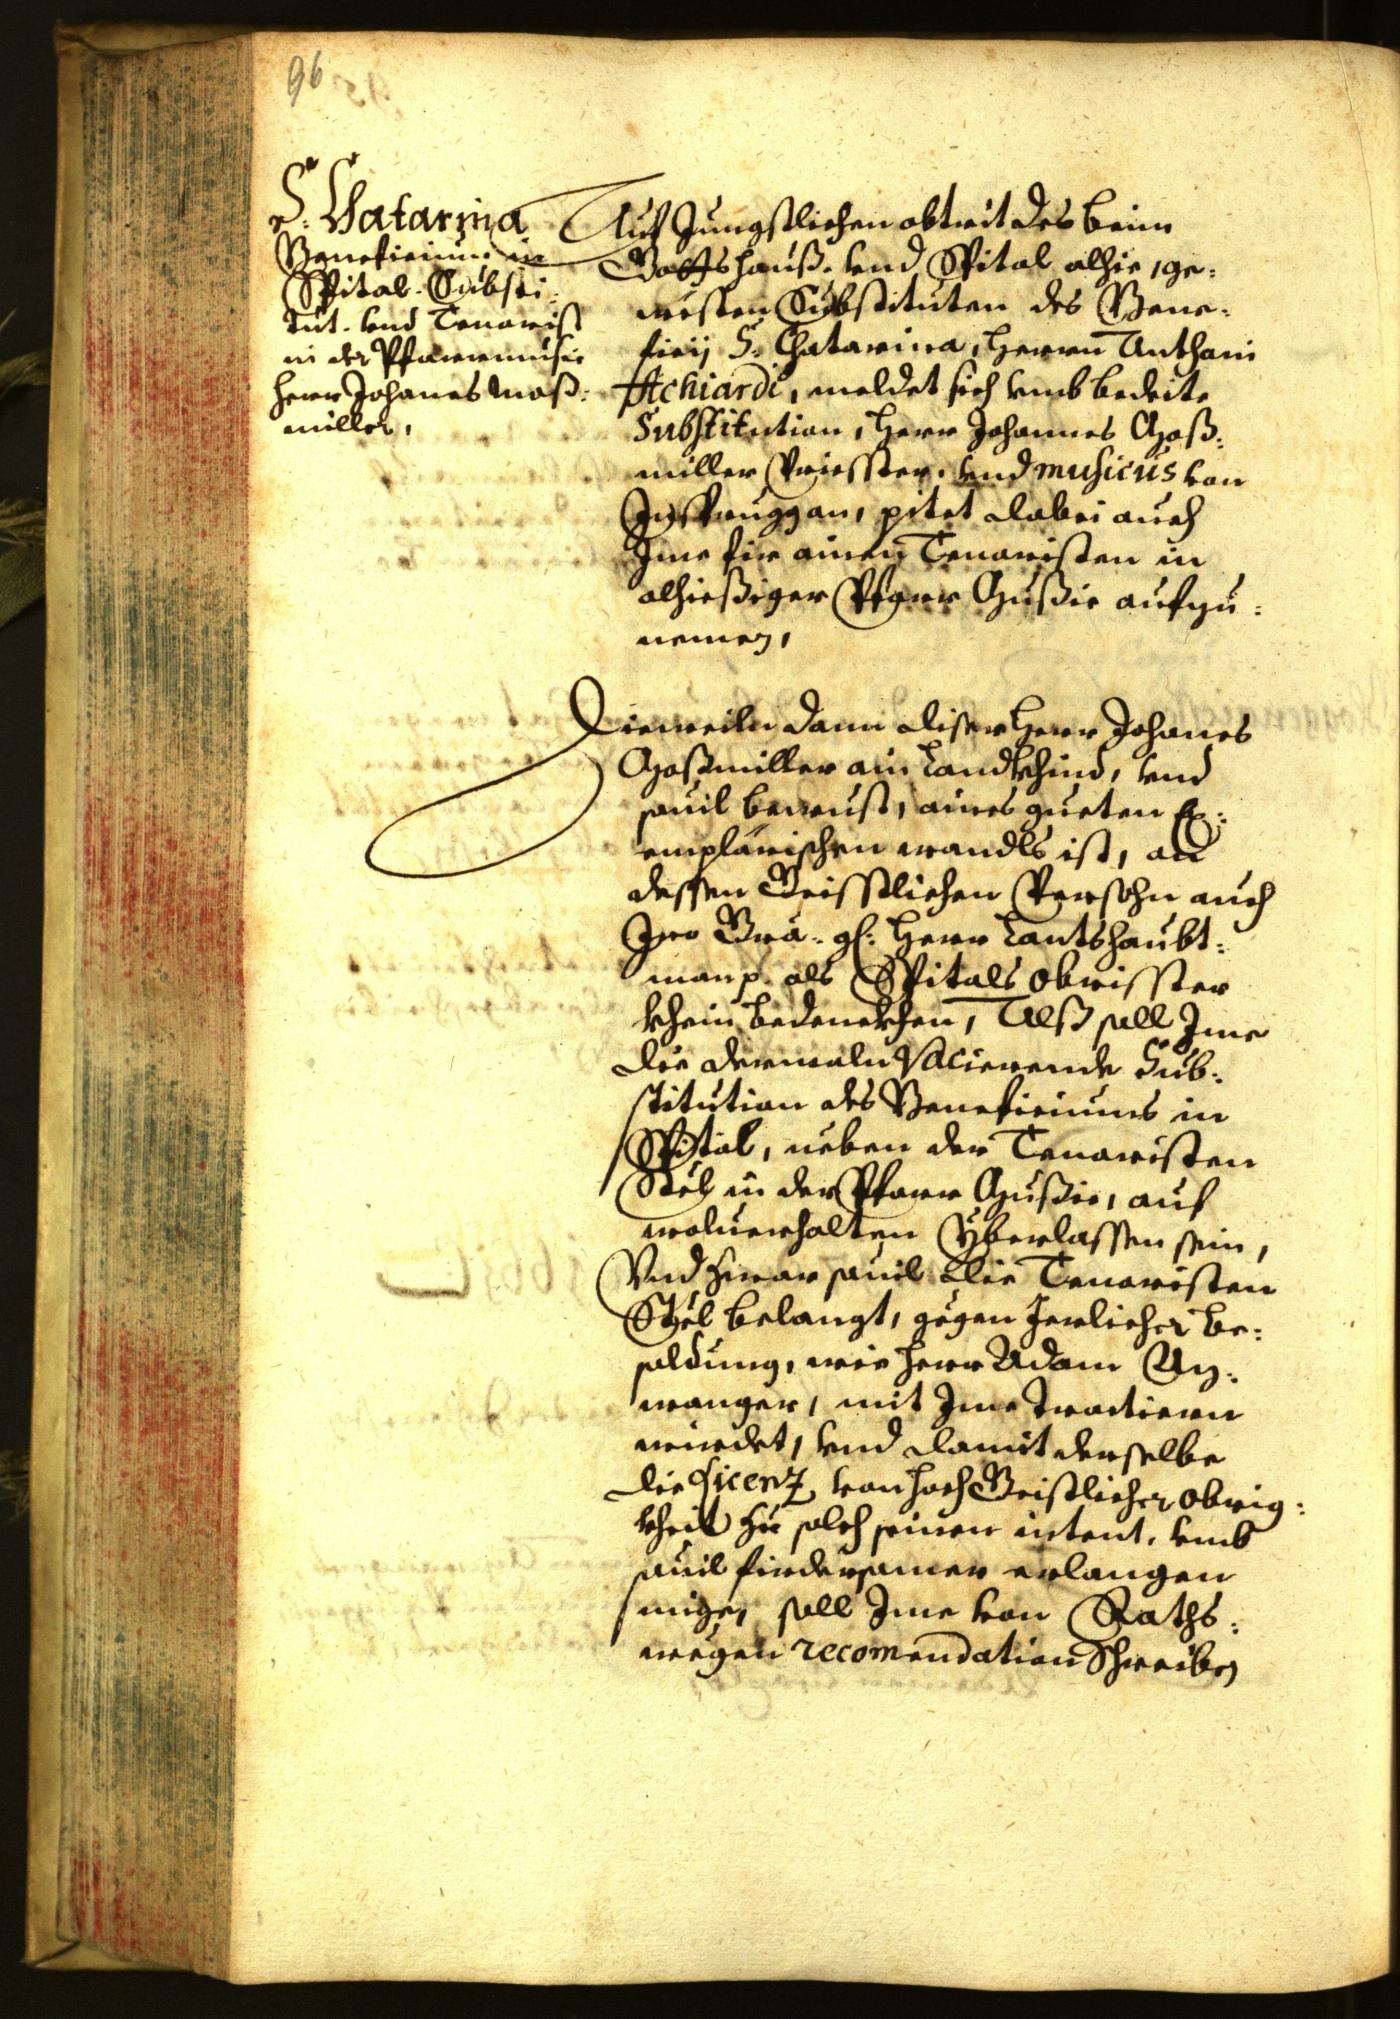 96
S. Chatarina
Beneficium in
Spital. Substi-
tut. vnd Tenorist
in der Pfarrmusic
herr Johanes Moß-
miller,
Auf Jungstlichen abtrit des beim
Gottshauß. vnd Spital alhie, ge-
westen Substituten des Bene-
ficij S. Chatarina, Herrn Anthoni
Achiardi, meldet sich vmb bedeite
Substitution, Herr Johannes Moß-
miller Priesster. vnd musicus von
Jnsprugg an, pitet dabei auch
Jme fir ainen Tenoristen in
alhießiger Pfarr Mußic aufzu-
nemen,
Dieweiln dann diser Herr Johanes
Moßmiller ain Landkhind, vnd
souil bewust, aines gueten Ex-
emplarischen wandls ist, an
dessen Geisstlichen Persohn auch
Jro Gra. gl: Herr Lantshaubt-
man p. als Spitals obrisster
khein bedenckhen, Alß soll Jme
die dermaln Vacierende Sub-
stitution des Beneficiums in
Spital, neben der Tenoristen
Stöl in der Pfarr Mußic, auf
wolverhalten Yberlassen sein,
Vnd zwar souil die Tenoristen
Stöl belangt, gegen Jerlicher be-
soldung, wie herr Adam An-
wanger, mit Jme Tractiern
wirdet, vnd damit derselbe
die Licenz von hoch Geistlicher obrig-
kheit zu solch seinen intent. vmb
souil firdersamer erlangen
mige, soll Jme von Raths-
wegen recomendation Schreiben